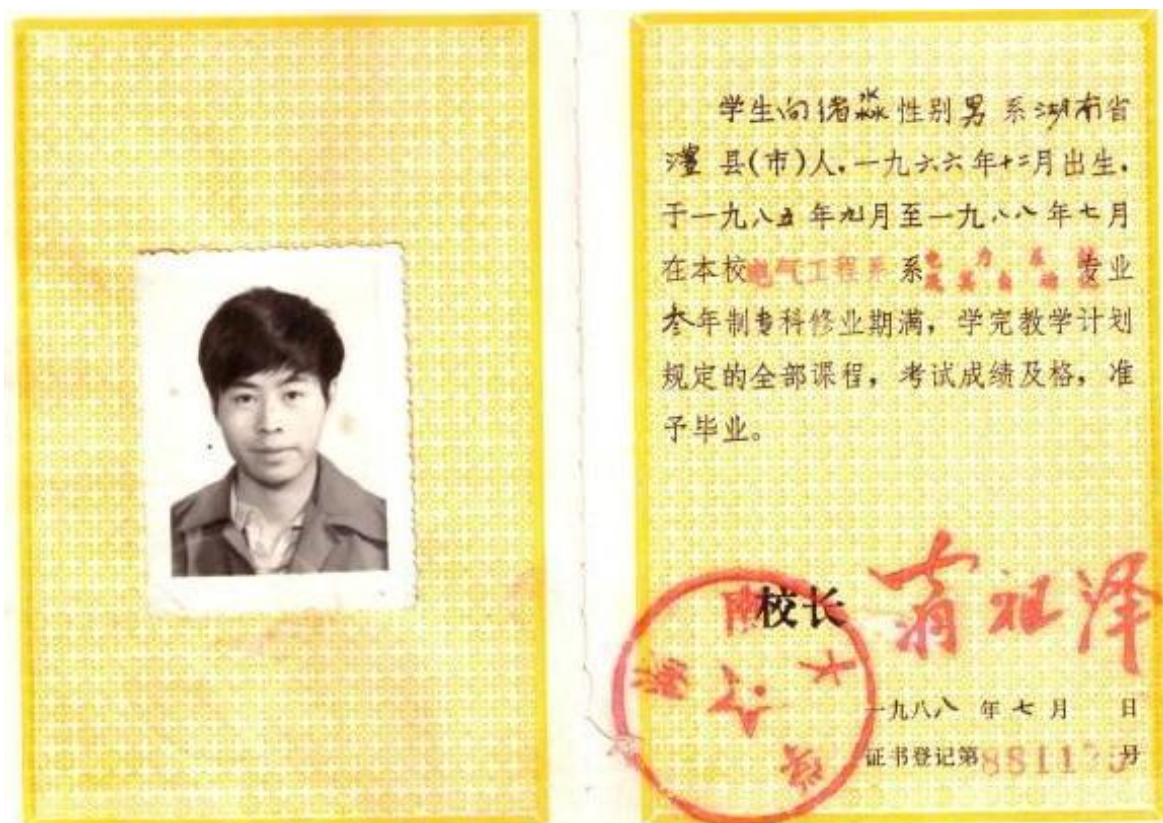 学生向绪淼性别男系湖南省
澧县(市)人,一九六六年十二月出生,
于一九八五年九月至一九八八年七月
在本校电气工程系系电力系统及其自动化专业
叁年制专科修业期满,学完教学计划
规定的全部课程,考试成绩及格,准
予毕业。
校长 翁祖泽
湖南大学
一九八八年七月 日
证书登记第 号